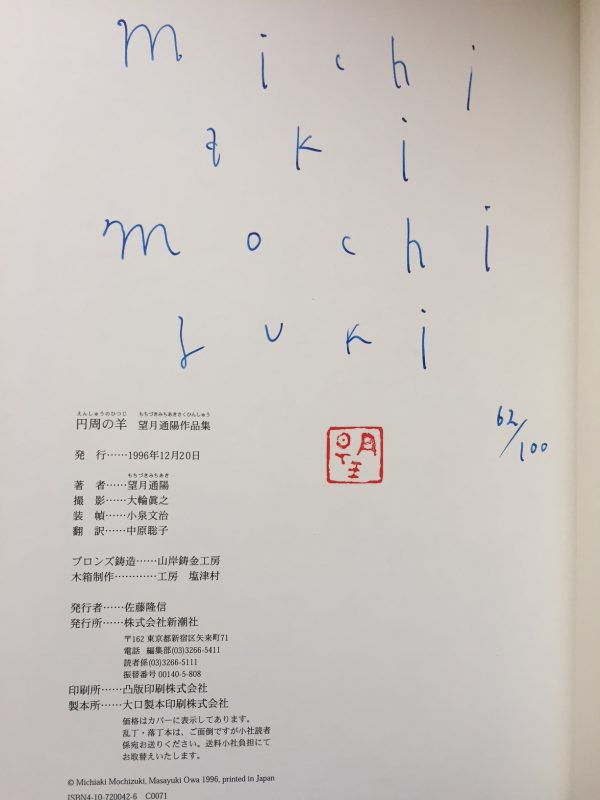 Michi
aki
Mochi
zuki
えんしゅうのひつじ もちづきみちあきさくひんしゅう
円周の羊 望月通陽作品集
62/100
発 行……1996年12月20日
もちづきみちあき
著 者……望月通陽
撮 影……大輪眞之
装 幀……小泉文治
翻 訳……中原聡子
ブロンズ鋳造……山岸鋳金工房
木箱制作…………工房 塩津村
発行者……佐藤隆信
発行所……株式会社新潮社
〒162 東京都新宿区矢来町71
電話 編集部(03)3266-5411
読者係(03)3266-5111
振替番号 00140-5-808
印刷所……凸版印刷株式会社
製本所……大口製本印刷株式会社
価格はカバーに表示してあります。
乱丁・落丁本は、ご面倒ですが小社読者
係宛お送りください。送料小社負担にて
お取替えいたします。
© Michiaki Mochizuki, Masayuki Owa 1996, printed in Japan
ISBN4-10-720042-6 C0071